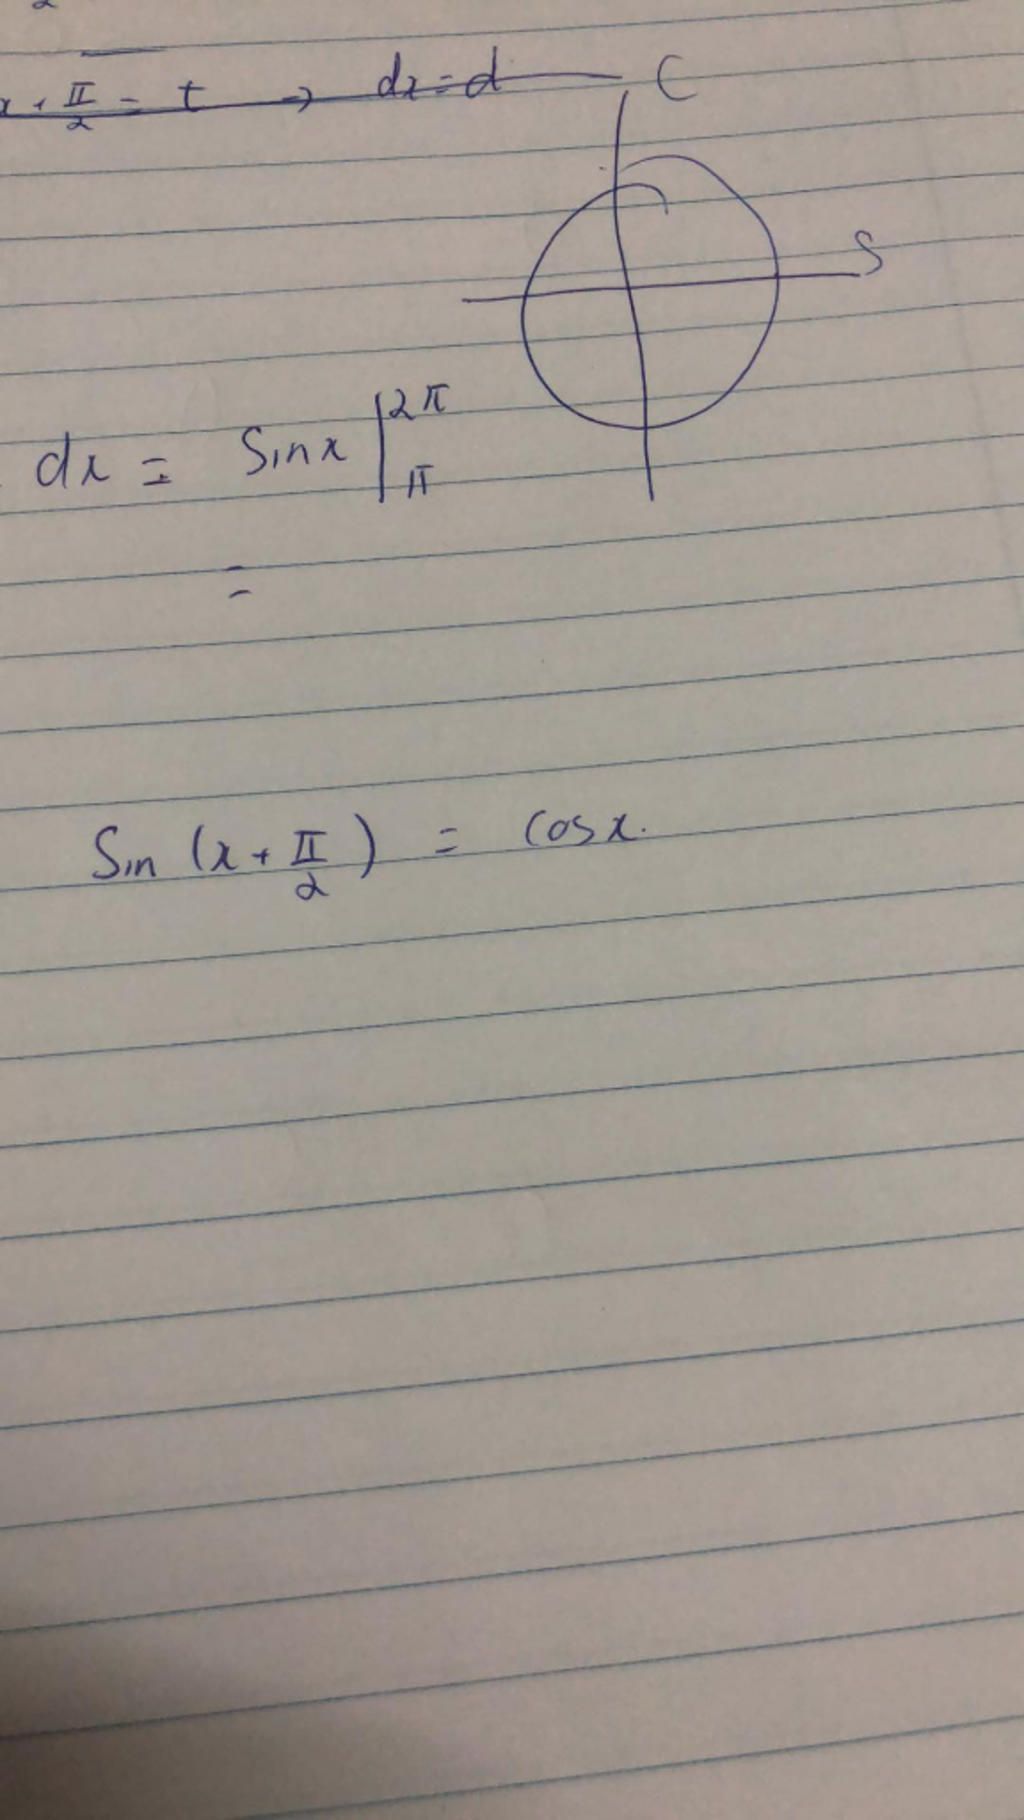 x + π/2 = t → dx = d
C
S
dx = Sinx |^{2π}_{π}
=
Sin (x + π/2) = Cosx.